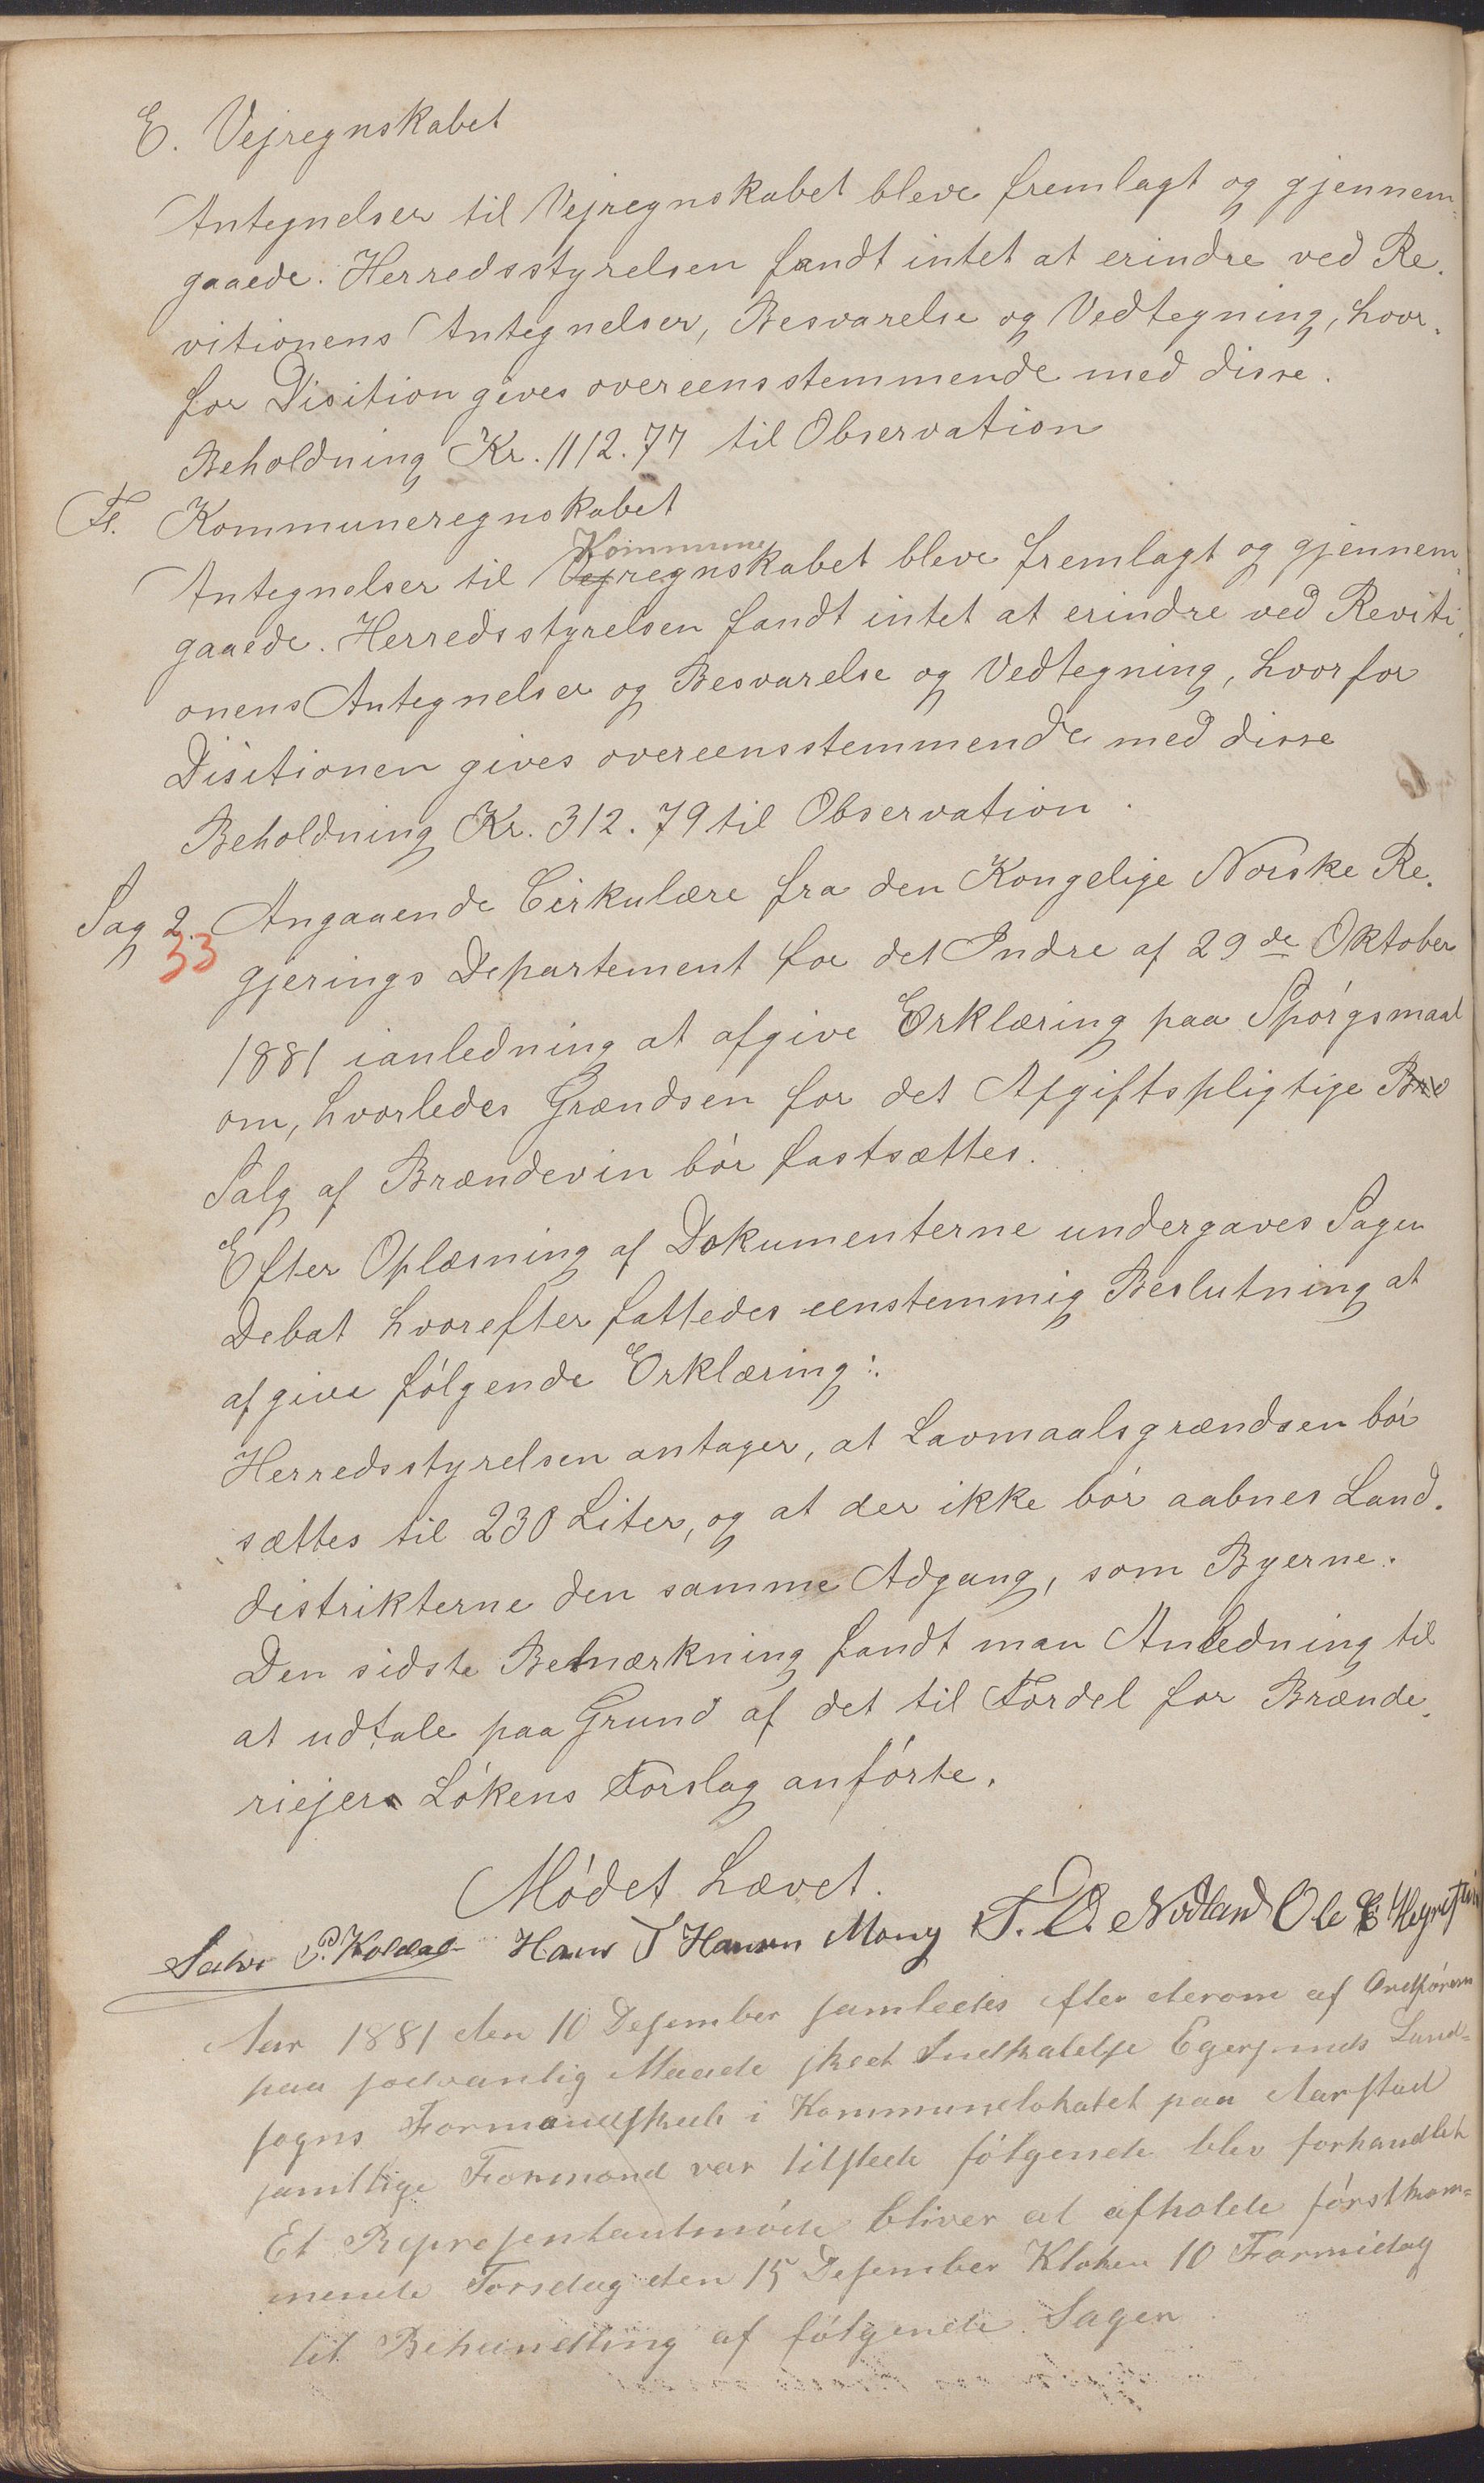 E. Vejregnskabet
Antegnelser til Vejregnskabet bleve fremlagt og gjennem=
gaaede. Herredsstyrelsen fandt intet at erindre ved Re.
vitionens Antegnelser, Besvarelse og Vedtegning, hvor.
for Disition gives overeensstemmende med disse.
Beholdning Kr. 1112.77 til Observation
F. Kommuneregnskabet
Kommune
Antegnelser til Vejregnskabet bleve fremlagt og gjennem.
gaaede. Herredsstyrelsen fandt intet at erindre ved Reviti.
onens Antegnelser og Besvarelse og Vedtegning, hvorfor
Disitionen gives overeensstemmende med disse
Beholdning Kr. 312.79 til Observation.
Sag 2. Angaaende Cirkulære fra den Kongelige Norske Re.
33 gjerings Departement for det Indre af 29de Oktober
1881 ianledning at afgive Erklæring paa Spórgsmaal
om, hvorledes Grændsen for det Afgiftspligtige
Salg af Brændevin bór fastsættes.
Efter Oplæsning af Dokumenterne undergaves Sagen
Debat hvorefter fattedes eenstemmig Beslutning at
afgive fólgende Erklæring:.
Herredsstyrelsen antager, at Lavmaalsgrændsen bór
sættes til 230 Liter, og at der ikke bór aabnes Land.
distrikterne den samme Adgang, som Byerne.
Den sidste Bemærkning fandt man Anledning til
at udtale paa Grund af det til Fordel for Brænde.
riejer Lókens Forslag anfórte.
Módet hævet.
P. Koldal Hans T Hansen Mong T. O. Nodland Ole E. Hegrestad
Aar 1881 den 10 Desember samledes efter derom af Ordfóreren
paa sedvanlig Maade skeet Indkalelse Egersunds Land=
sogns Formandskab i Kommunelokalet paa Aarstad
samtlige Formænd var tilstede fólgende blev forhandlet
Et Representantmóde bliver at afholde fórstkom=
mende Torsdag den 15 Desember Kloken 10 Formidag
til Behandling af fólgende Sager